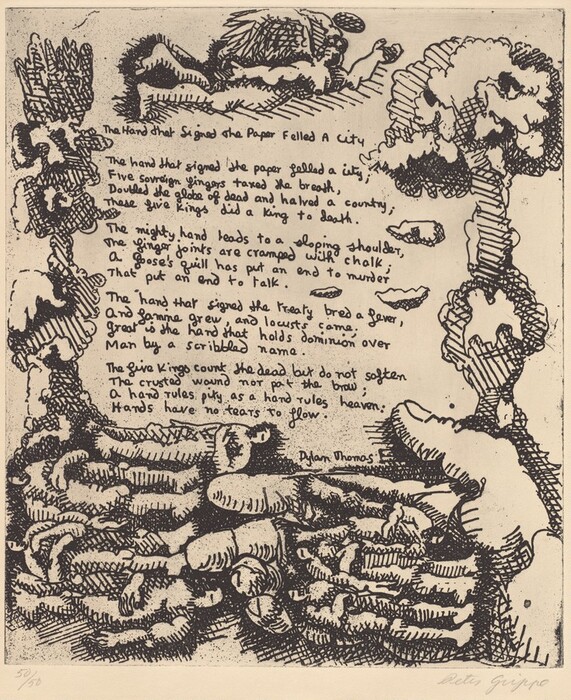 The Hand that Signed The Paper Felled A City
The hand that signed the paper felled a city;
Five sovereign fingers taxed the breath,
Doubled the globe of dead and halved a country;
These five Kings did a King to death.
The mighty hand leads to a sloping shoulder,
The finger joints are cramped with chalk;
A goose's quill has put an end to murder
That put an end to talk.
The hand that signed the treaty bred a fever,
And famine grew, and locusts came;
Great is the hand that holds dominion over
Man by a scribbled name.
The five Kings count the dead but do not soften
The crusted wound nor pat the brow;
A hand rules pity as a hand rules heaven;
Hands have no tears to flow.
Dylan Thomas
50/50
Peter Grippo